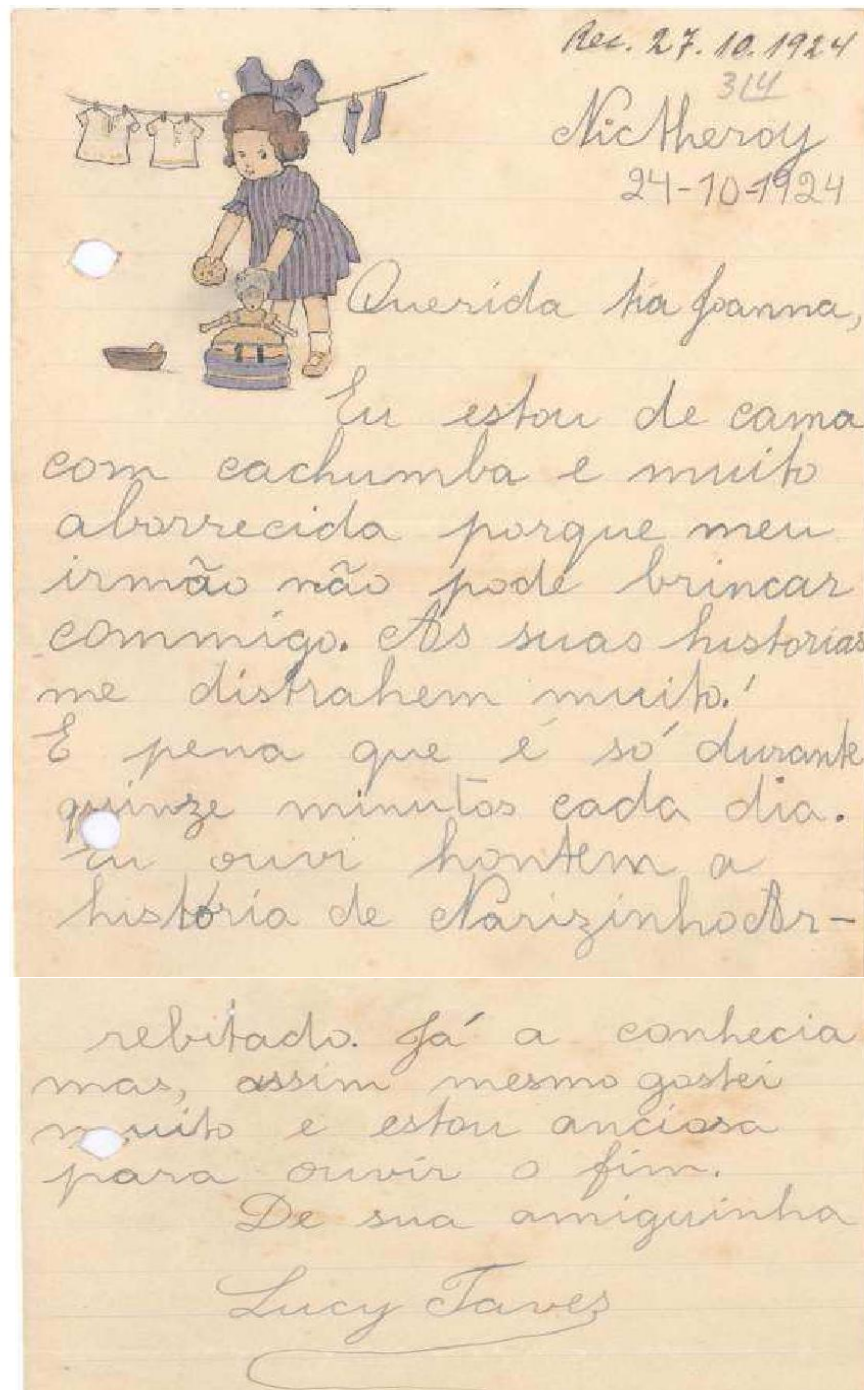 Rec. 27.10.1924
314
Nictheroy
24-10-1924
Querida tia Joanna,
Eu estou de cama
com cachumba e muito
aborrecida porque meu
irmão não pode brincar
commigo. As suas historias
me distrahem muito!
É pena que é só durante
quinze minutos cada dia.
Eu ouvi hontem a
história de Narizinho Ar-
rebitado. Já a conhecia
mas, assim mesmo gostei
muito e estou anciosa
para ouvir o fim.
De sua amiguinha
Lucy Taves